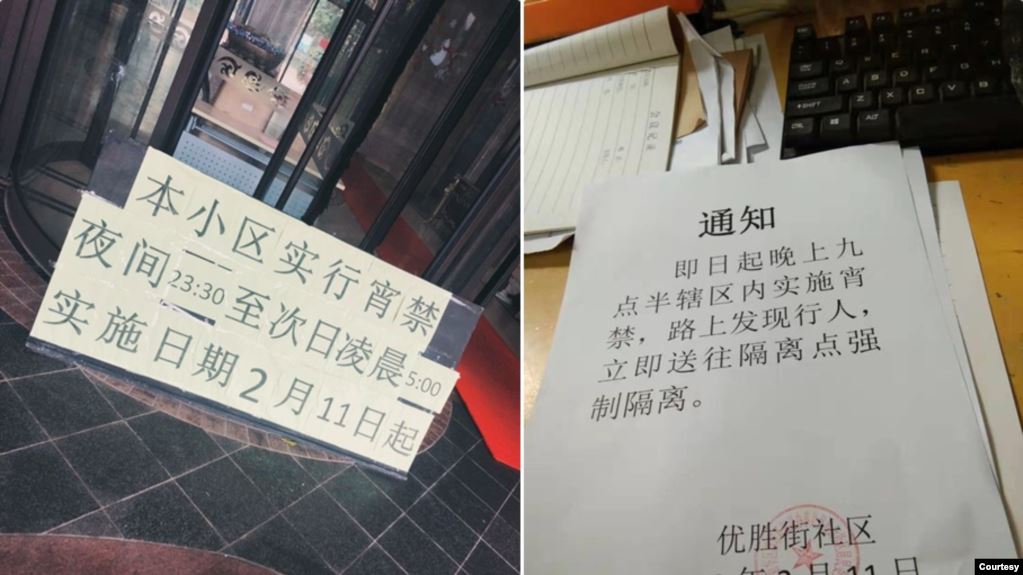 本小区实行宵禁
夜间23:30至次日凌晨5:00
实施日期2月11日起
会议记录
通知
即日起晚上九
点半辖区内实施宵
禁，路上发现行人，
立即送往隔离点强
制隔离。
优胜街社区
年2月11日
Courtesy